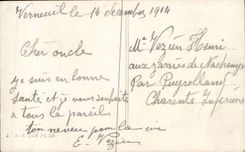 Verneuil le 14 décembre 1914
Cher oncle
je suis en bonne
santé et je vous souhaite
à tous la pareil
ton neveu pour la vie
E. Vezien
Mr Vezien Henri
aux
Par Puyrolland
Charente Inférieure